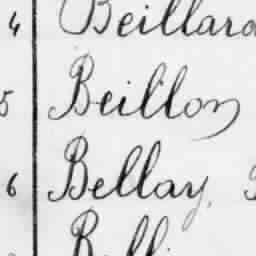 4 Beillard
5 Beillon
6 Bellay